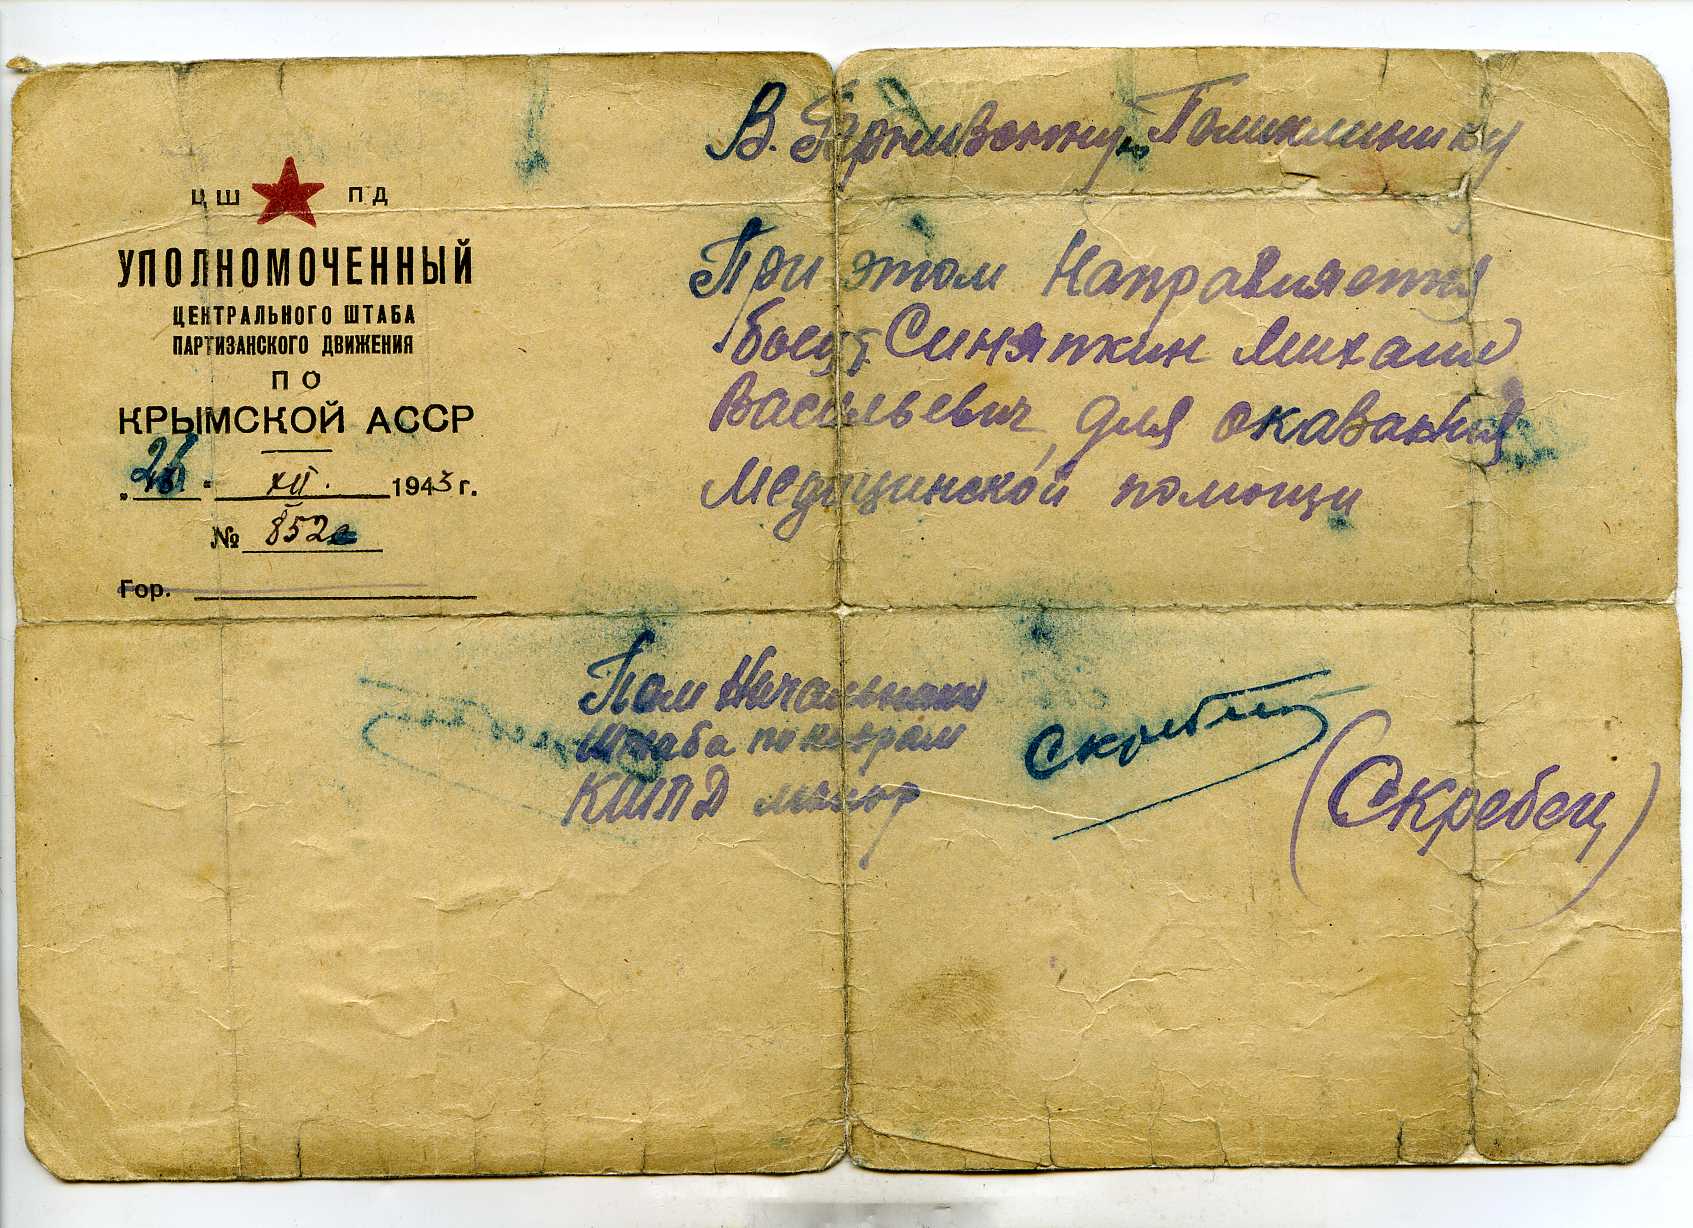 ЦШ ПД
УПОЛНОМОЧЕННЫЙ
ЦЕНТРАЛЬНОГО ШТАБА
ПАРТИЗАНСКОГО ДВИЖЕНИЯ
ПО
КРЫМСКОЙ АССР
"26" XII. 1943 г.
№ 852с
Гор.
В. Гарнизонную Поликлинику
При этом Направляется
боец Синяпкин Михаил
Васильевич, для оказания
Медицинской помощи
Пом Начальника
Штаба по кадрам
КШПД майор
Скребец
(Скребец)